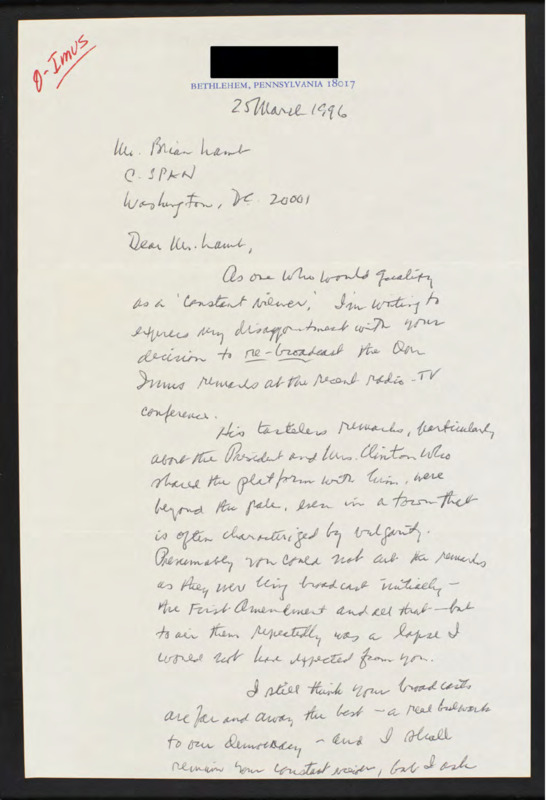 0-Imus
BETHLEHEM, PENNSYLVANIA 18017
25 March 1996
Mr. Brian Lamb
C-SPAN
Washington, DC 20001
Dear Mr. Lamb,
As one who would qualify
as a 'constant viewer,' I'm writing to
express my disappointment with your
decision to re-broadcast the Don
Imus remarks at the recent radio-TV
conference.
His tasteless remarks, particularly
about the President and Mrs. Clinton who
shared the platform with him, were
beyond the pale, even in a town that
is often characterized by vulgarity.
Presumably you could not cut the remarks
as they were being broadcast initially -
the First Amendment and all that - but
to air them repeatedly was a lapse I
would not have expected from you.
I still think your broadcasts
are far and away the best - a real bulwark
to our democracy - and I shall
remain your constant viewer, but I ask